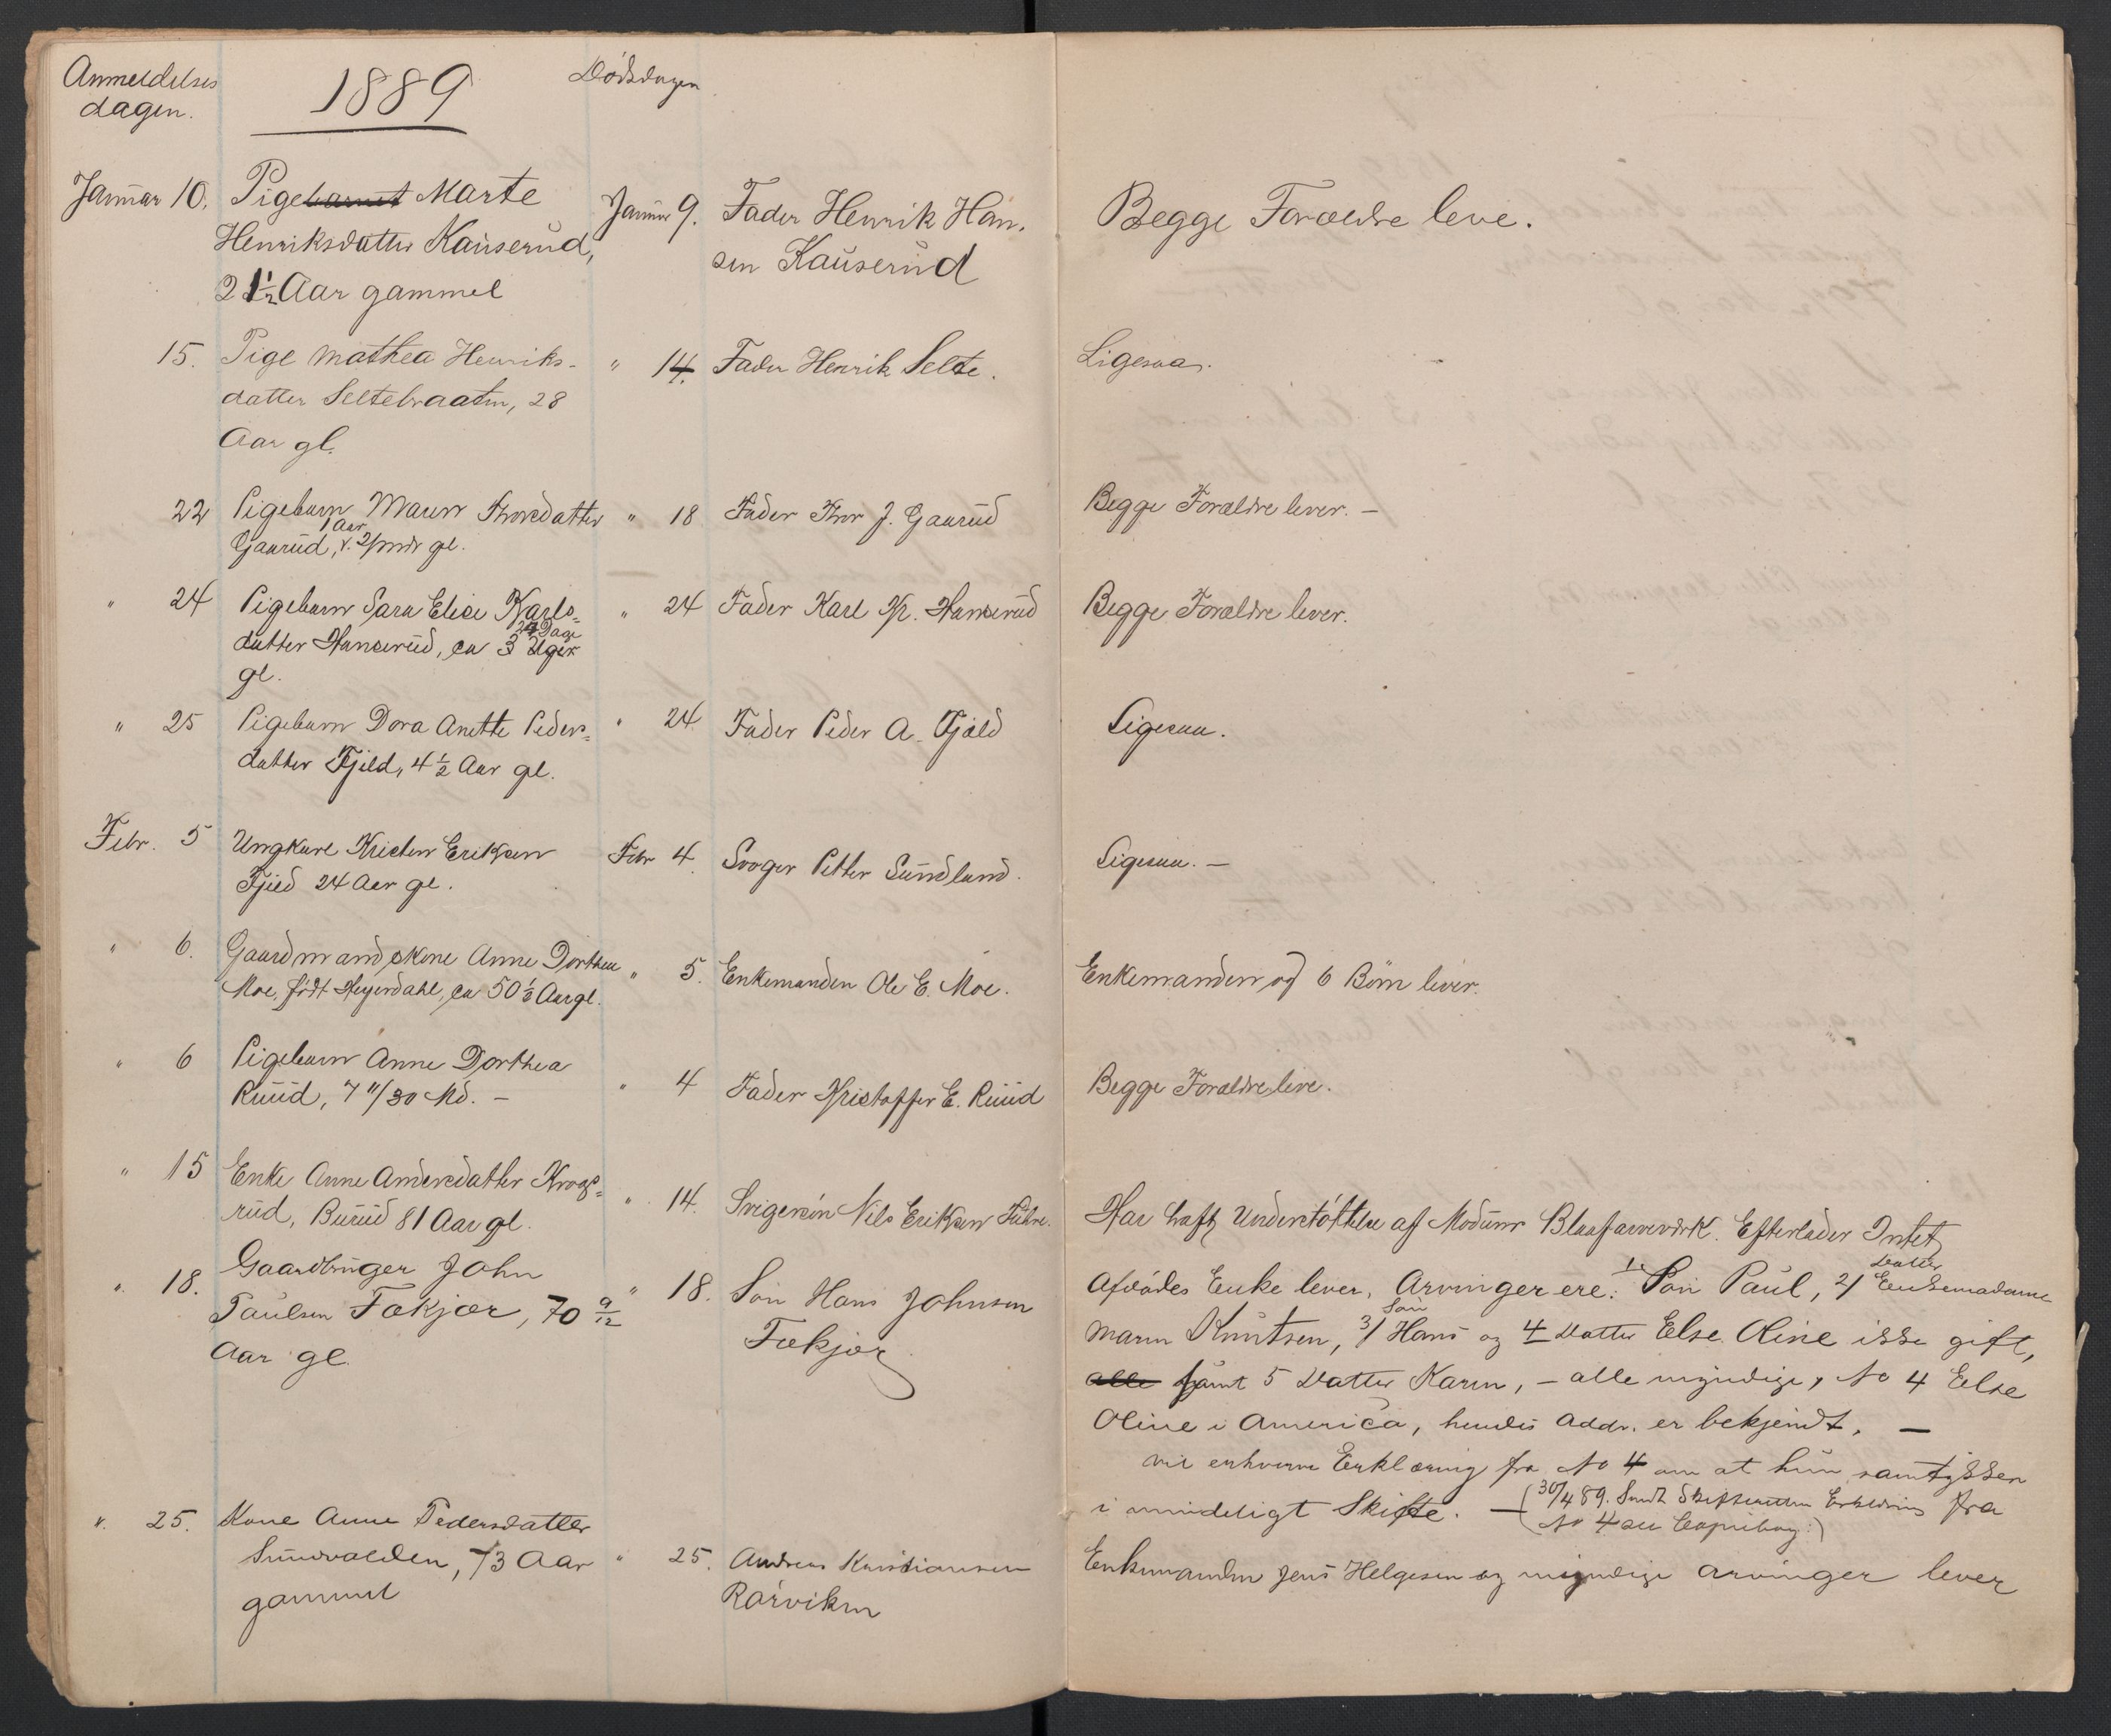 Anmeldelses
dagen.
1889
Dødsdagen
Januar 10. Pigebarnet Marte
Henriksdatter Kauserud,
21½ Aar gammel
Januar 9. Fader Henrik Han-
sen Kauserud
Begge Forældre leve.
15. Pige Mathea Henriks-
datter Seltebraaten, 28
Aar gl.
" 14. Fader Henrik Selte.
Ligesaa.
22 Pigebarn Maren Thorsdatter
1 Aar
Gaarud, 2/ mdr gl.
" 18 Fader Thor J. Gaarud
Begge Forældre lever. —
" 24 Pigebarn Sara Elise Karls=
24 Dage
datter Hanserud, ca 3 Uger
gl.
" 24 Fader Karl Kr. Hanserud
Begge Forældre lever.
" 25 Pigebarn Dora Anette Peders=
datter Fjeld, 4½ Aar gl.
" 24 Fader Peder A. Fjeld
Ligesaa.
Febr. 5 Ungkarl Kristen Eriksen
Fjeld 24 Aar gl.
Febr 4. Svoger Petter Sundland.
Ligesaa. —
" 6. Gaardmandskone Anne Dorthea
Moe, født Heyerdahl, ca 50½ Aar gl.
" 5. Enkemanden Ole E. Moe.
Enkemanden og 6 Børn lever.
" 6 Pigebarn Anne Dorthea
Ruud, 7 11/30 Md. —
" 4 Fader Kristoffer E. Ruud
Begge Forældre leve.
" 15 Enke Anne Andersdatter Krogs=
rud, Burud 81 Aar gl.
" 14. Svigersøn Nils Eriksen
Har havt Understøttelse af Modums Blaafarveværk. Efterlader Intet
" 18. Gaardbruger John
Paulsen Fækjær, 70 9/12
Aar gl.
" 18. Søn Hans Johnsen
Fækjær
Datter
Afdødes Enke lever, Arvinger ere: 1/ Søn Paul, 2/ Enkemadame
Søn
Maren Knutsen, 3/ Hans og 4 Datter Else Oline ikke gift,
alle samt 5 Datter Karen, — alle myndige, No 4 Else
Oline i America, hendes Addr. er bekjendt. —
vil erhverve Erklæring fra No 4 om at hun samtykker
i mindeligt Skifte. — (30/4 89. Sendt Skifteretten Erklæring fra
No 4 Copiebog:)
" 25. Kone Anne Pedersdatter
Sundvolden, 73 Aar
gammel
" 25. Andreas Kristiansen
Rørviken
Enkemanden Jens Helgesen og myndige Arvinger lever